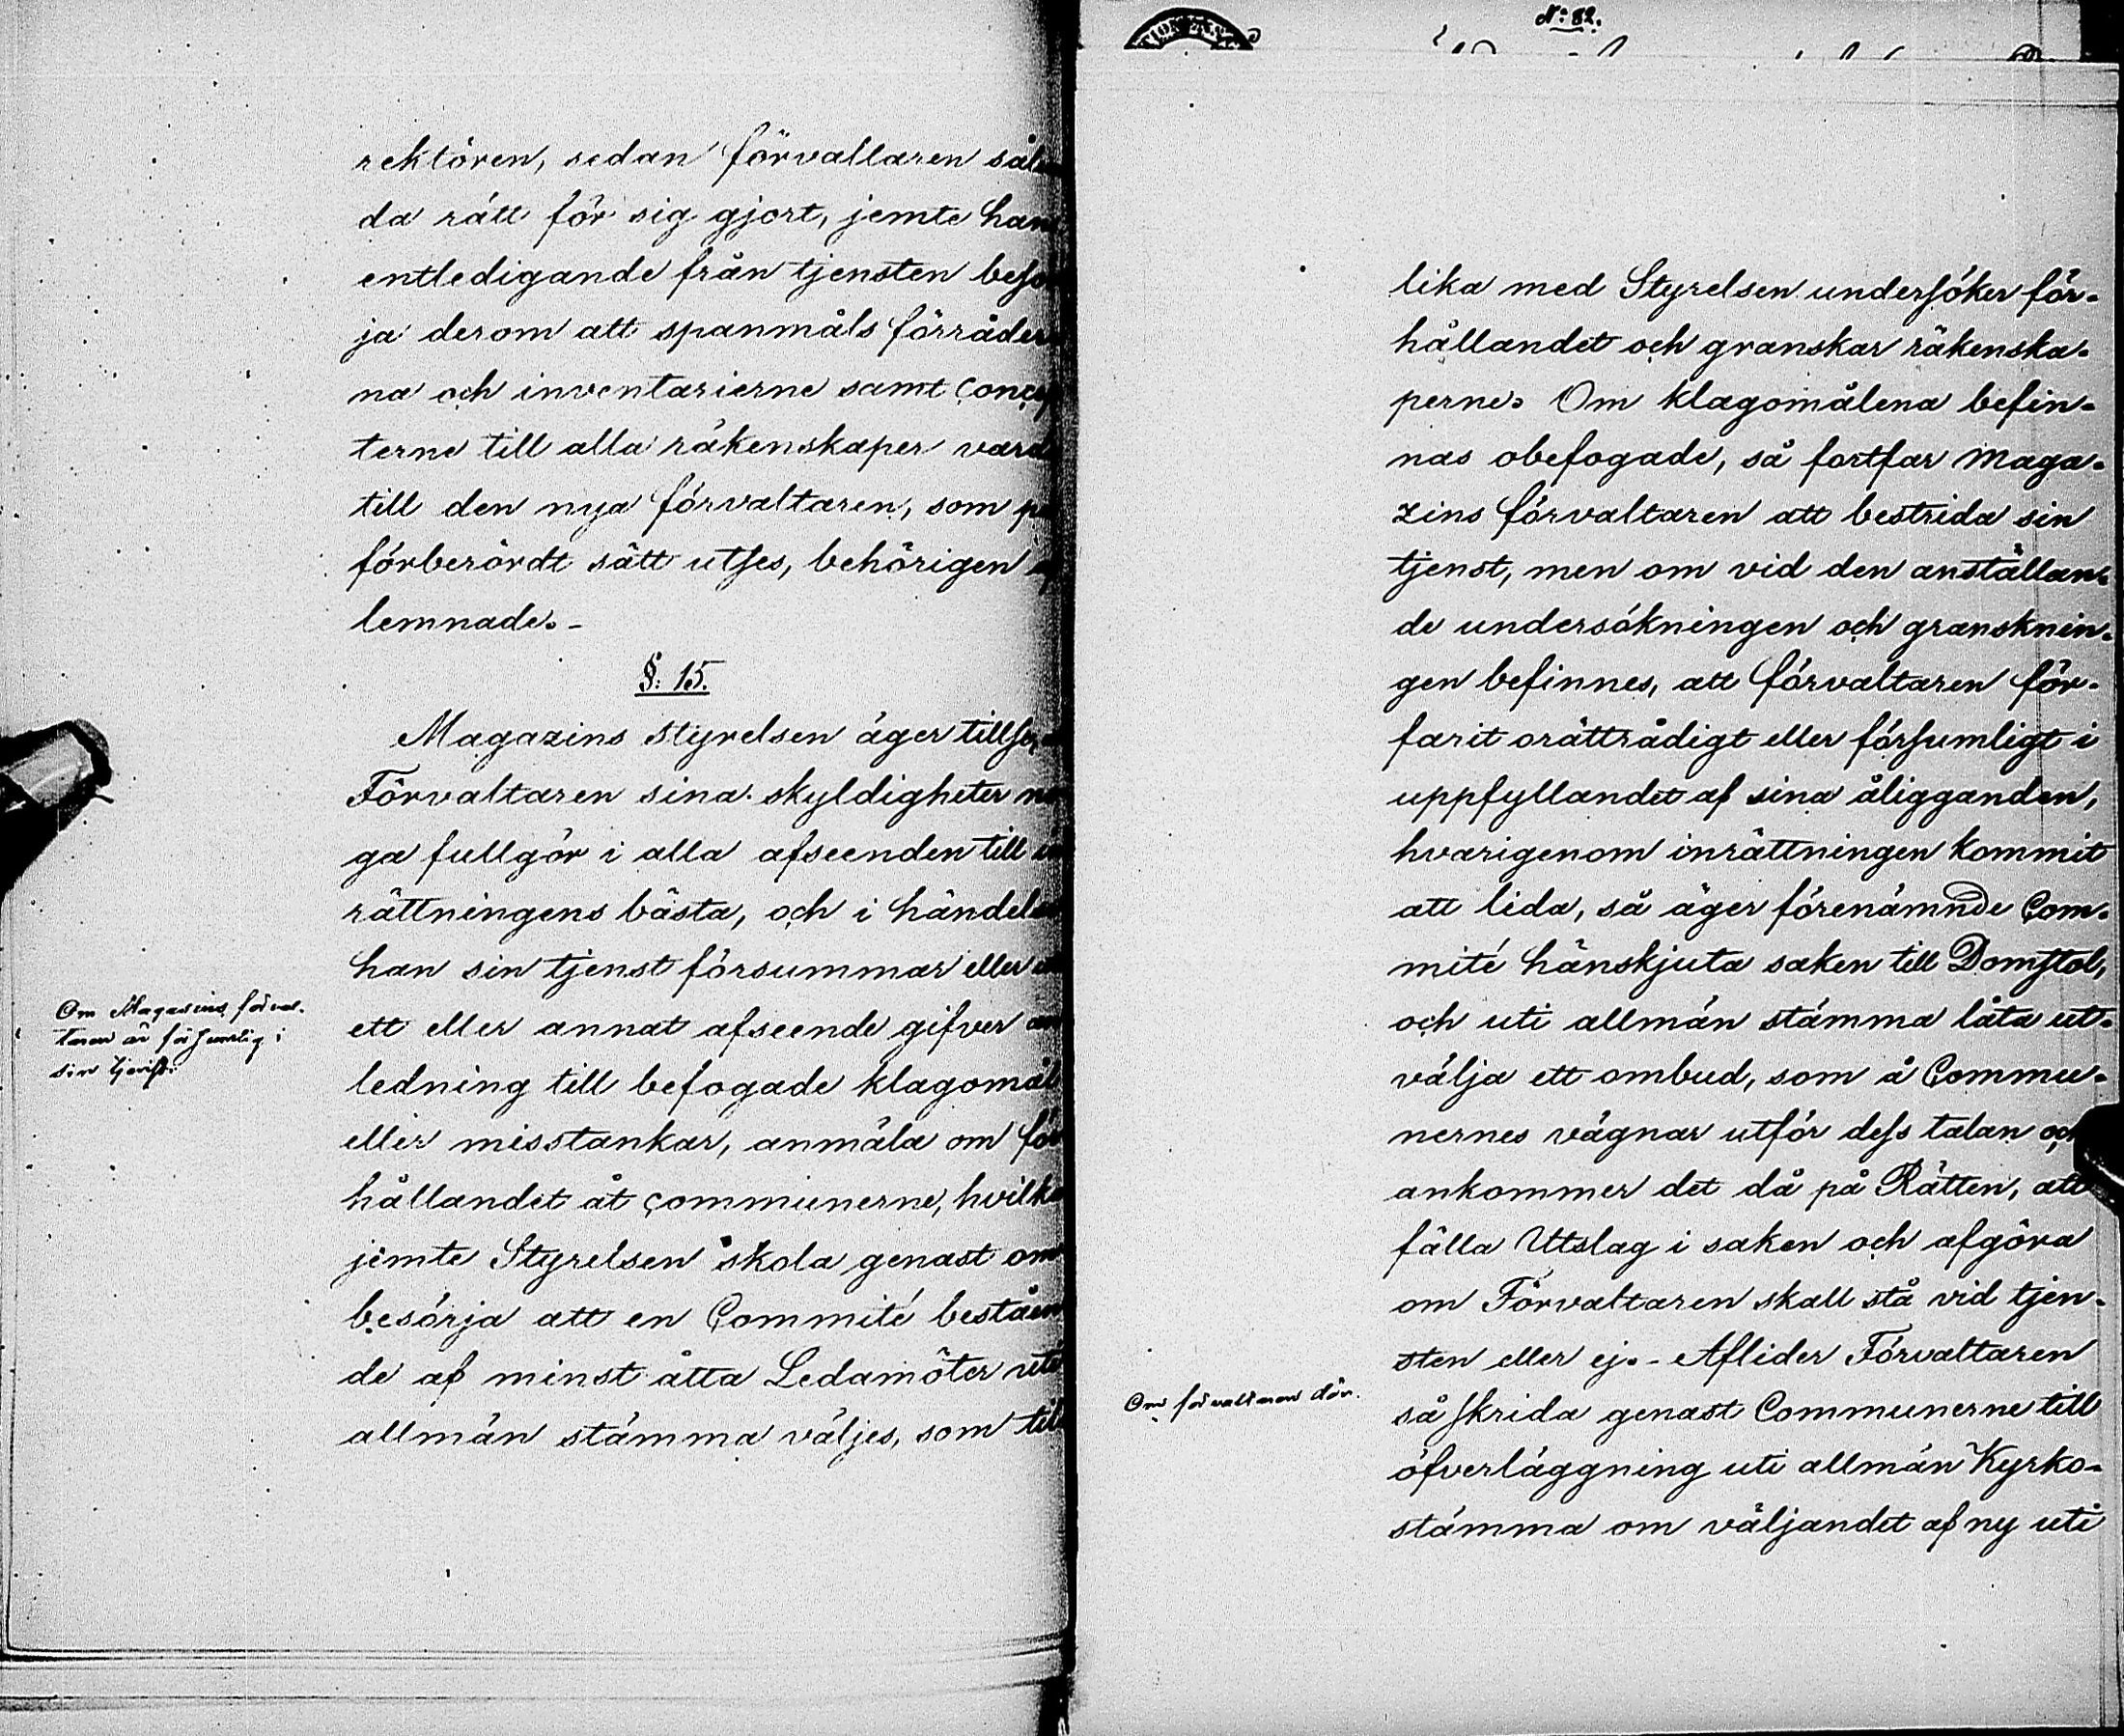 rektören, sedan förvaltaren sålun
da rätt för sig gjort, jemte han
entledigande från tjensten besör
ja derom att spanmåls förråder
na och inventarierne samt Concep
terne till alla räkenskaper varda
till den nya förvaltaren, som på
förberördt sätt utses, behörigen
lemnade.-
§: 15.
Magazins styrelsen äger tillse, a
Förvaltaren sina skyldigheter no
ga fullgör i alla afseenden till in
rättningens bästa, och i händelse
han sin tjenst försummar eller
Om Magasins förval-
taren är försumlig i
sin tjenst.
ett eller annat afseende gifver an
ledning till befogade klagomål
eller misstankar, anmäla om för
hållandet åt communerne, hvilka
jemte Styrelsen skola genast om
besörja att en Committé beståen
de af minst åtta Ledamöter uti
allmän stämma väljes, som till
N: 82.
lika med Styrelsen undersöker för-
hållandet och granskar räkenska-
perne. Om klagomålena befin-
nas obefogade, så fortfar Maga-
zins förvaltaren att bestrida sin
tjenst, men om vid den anställan-
de undersökningen och gransknin-
gen befinnes, att förvaltaren för-
farit orättrådigt eller försumligt i
uppfyllandet af sina åligganden,
hvarigenom inrättningen kommit
att lida, så äger förenämnde Com-
mité hänskjuta saken till Domstol,
och uti allmän stämma låta ut-
välja ett ombud, som å Commu-
nernes vägnar utför dess talan och
ankommer det då på Rätten, att
fälla Utslag i saken och afgöra
om Förvaltaren skall stå vid tjen-
sten eller ej.- Aflider Förvaltaren
Om förvaltaren dör.
så skrida genast Communerne till
öfverläggning uti allmän Kyrko-
stämma om väljandet af ny uti